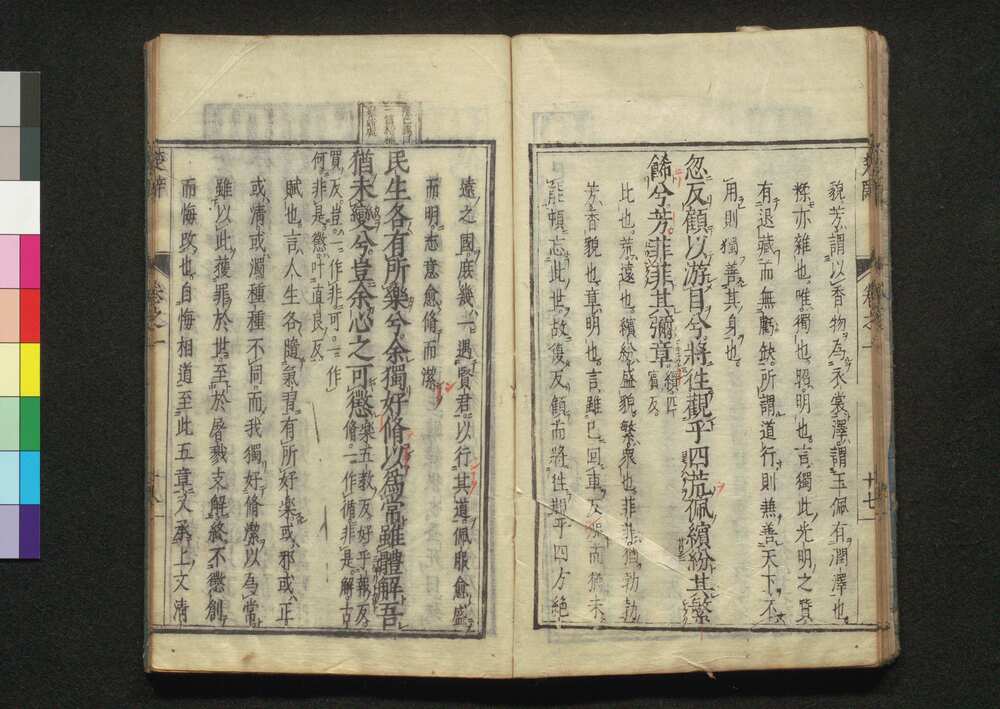 貌芳謂以香物為衣裳澤謂玉佩有潤澤也
糅亦雜也唯獨也昭明也言獨此光明之質
有退藏而無虧缺所謂道行則兼善天下不
用則獨善其身也
忽反顧以游目兮將往觀乎四荒佩繽紛其繁
飾兮芳菲菲其彌章繽匹賓反
比也荒遠也繽紛盛貌繁衆也菲菲猶勃勃
芳香貌也章明也言雖已回車反服而猶未
能頓忘此世故復反顧而將往觀乎四方絶
遠之國庶幾一遇賢君以行其道佩服愈盛
而明志意愈脩而潔
民生各有所樂兮余獨好脩以為常雖體解吾
猶未變兮豈余心之可懲樂五教反好乎報反脩一作循非是解古
買反豈一作非可一作何非是懲叶直良反
賦也言人生各隨氣習有所好樂或邪或正
或清或濁種種不同而我獨好脩潔以為常
雖以此獲罪於世至於屠戮支解終不懲創
而悔改也自悔相道至此五章又承上文清
卷之一
十七
楚辭
卷之一